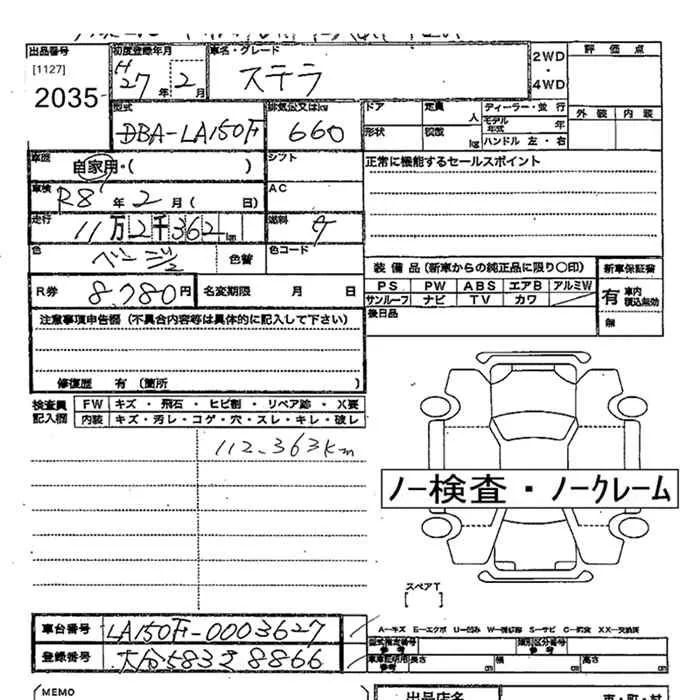 出品番号 初度登録年月 車名・グレード 2WD・4WD 評価点
[1127]
2035
H27年2月 ステラ
外装 内装
型式 排気公又はkg ドア 定員 人 ディーラー・並行
DBA-LA150F 660
形状 積酸 kg モデル年式 年
ハンドル 左・右
車歴 自家用・( ) シフト 正常に機能するセールスポイント
車検 R8年2月( 日) AC
走行 11万2千362km 燃料 ガ
色 色替 色コード
装備品(新車からの純正品に限り○印) 新車保証書
R券 8,780円 名変期限 月 日
PS PW ABS エアB アルミW
サンルーフ ナビ TV カワ
有 車内 積込無効
無
後日品
注意事項申告欄(不具合内容等は具体的に記入して下さい)
修復歴 有(箇所 )
検査員記入欄 FW キズ・飛石・ヒビ割・リペア跡・X要
内装 キズ・汚レ・コゲ・穴・スレ・キレ・破レ
112,363km
ノー検査・ノークレーム
スペアT
[ ]
車台番号 LA150F-0003627
A−キズ E−エクボ U−凹み W−補修跡 S−サビ C−腐食 XX−交換済
型式指定番号 参考 類別区分番号 参考
登録番号 大分583き8866
車車証明用 参考 長さ cm 幅 cm 高さ cm
MEMO 出品店名 市・町・村